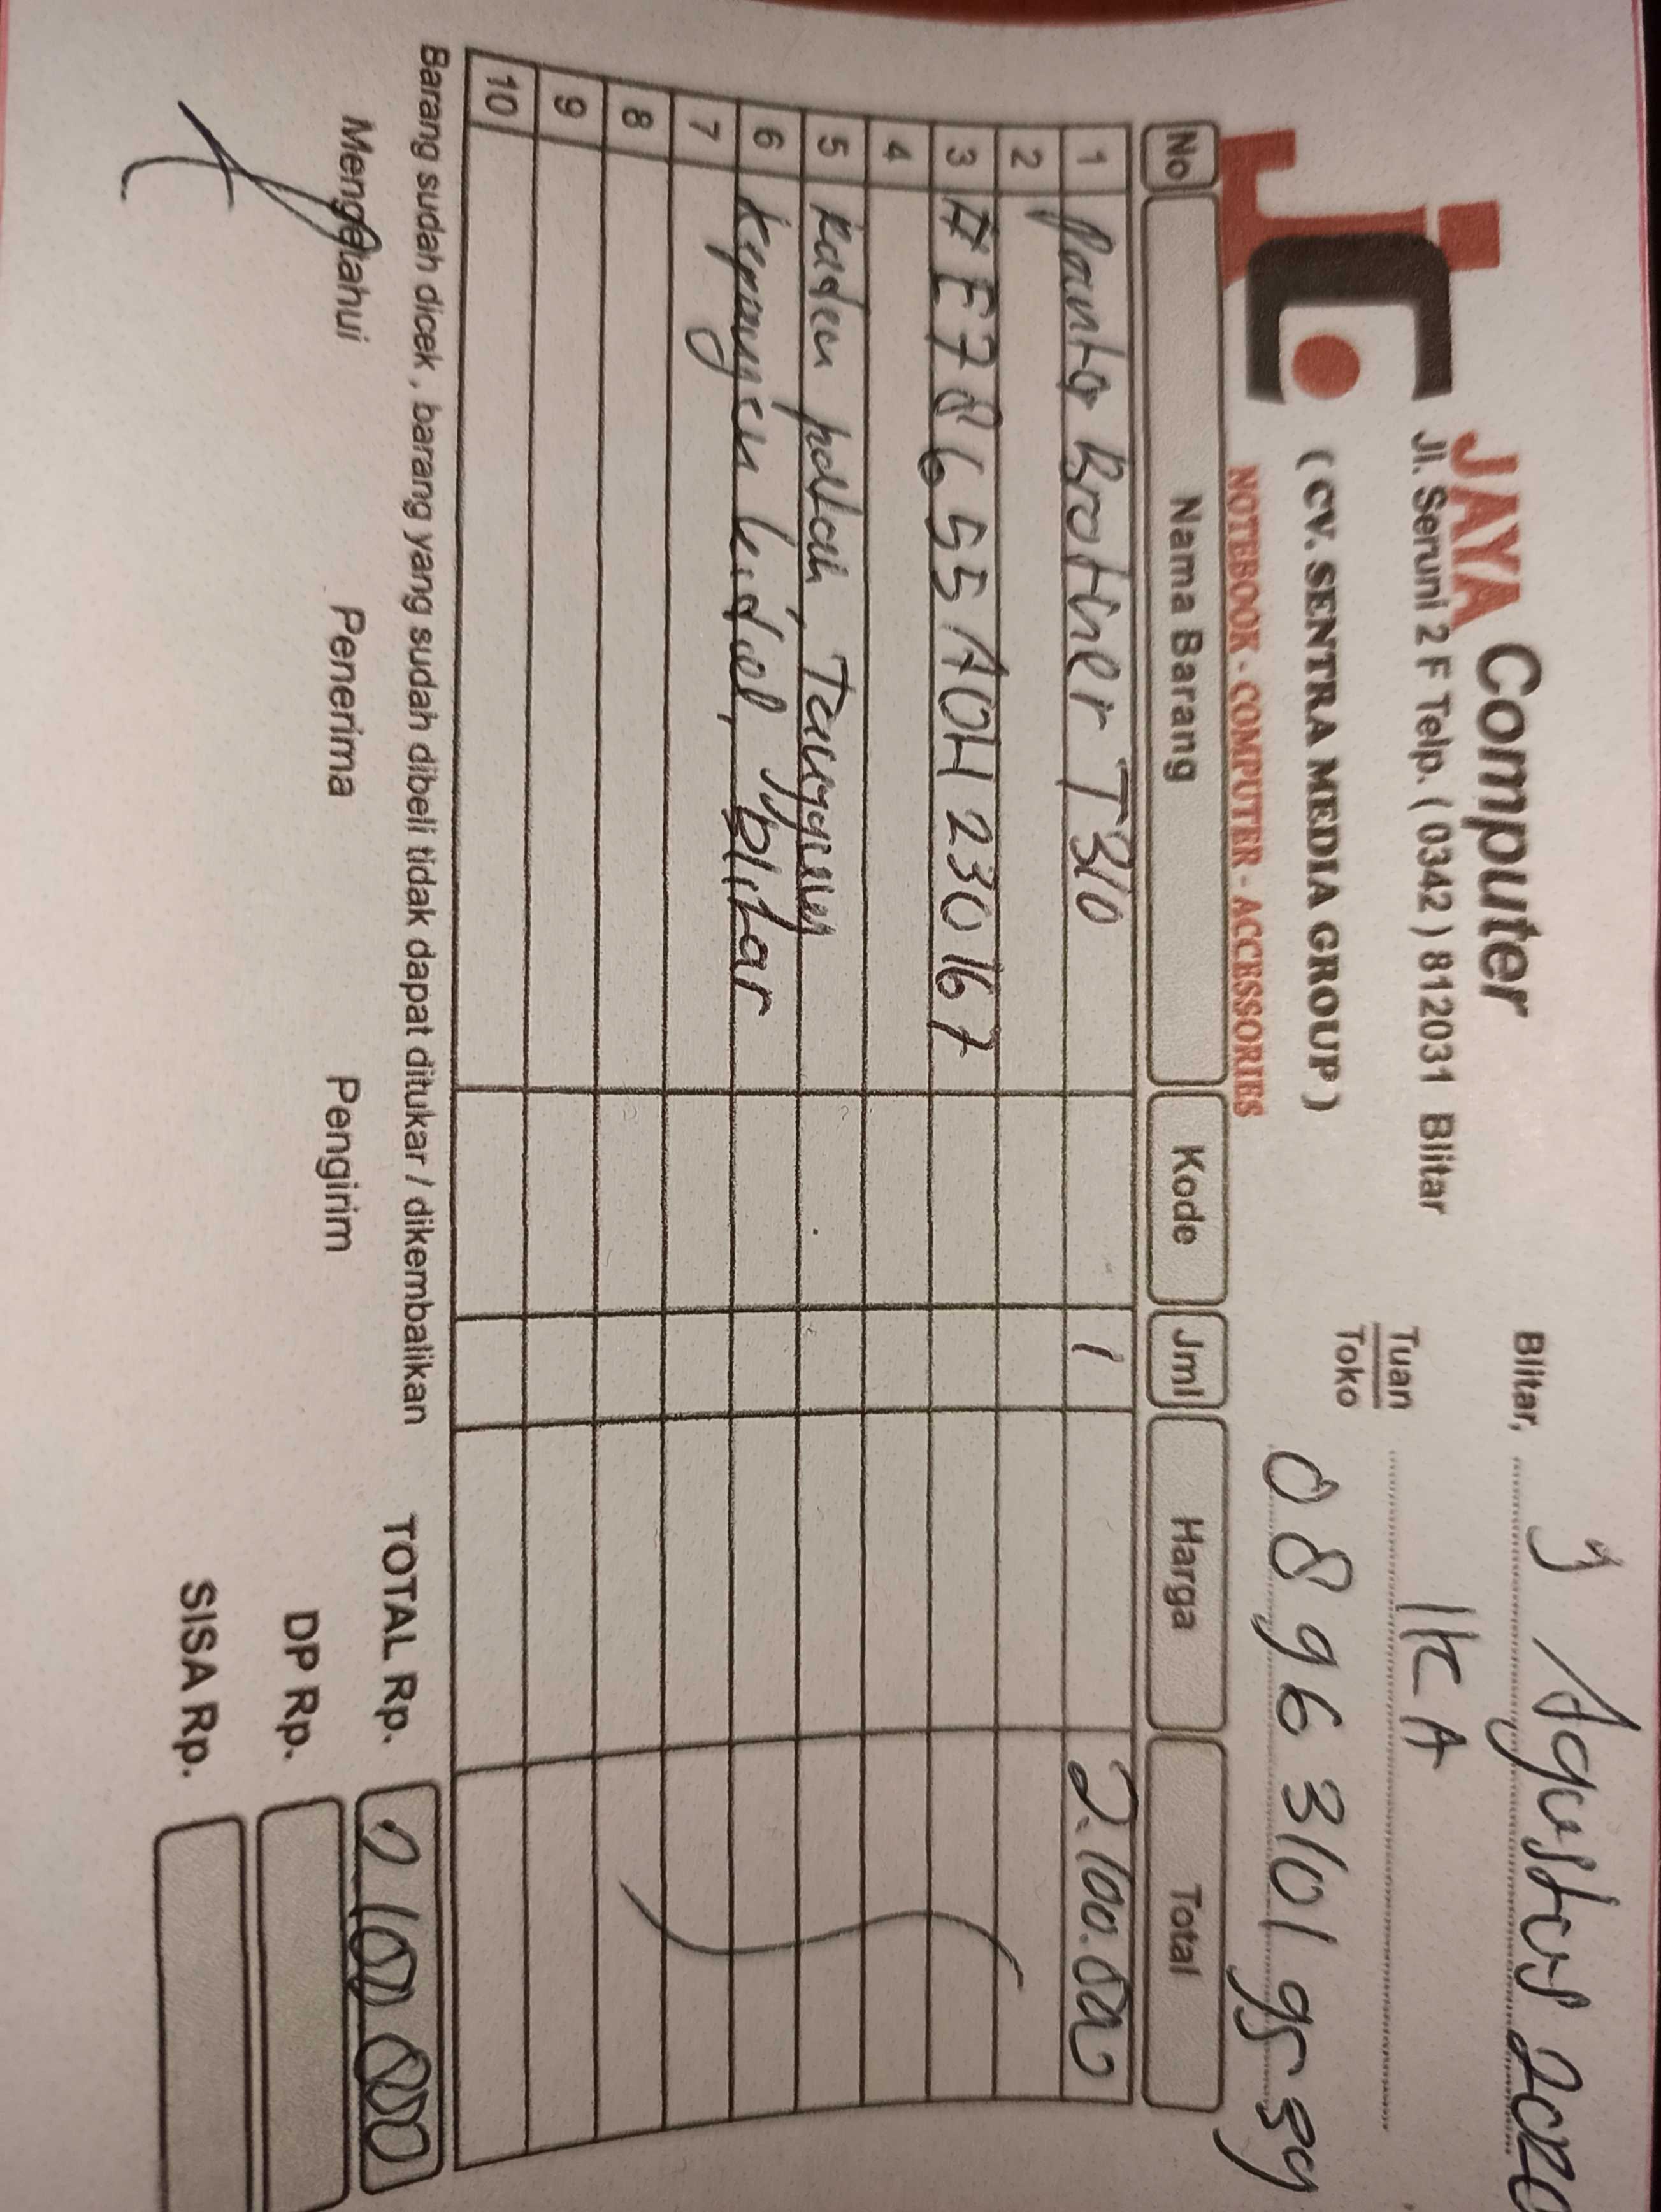 JC.
JAYA Computer
Jl. Seruni 2 F Telp. ( 0342 ) 812031 Blitar
( CV. SENTRA MEDIA GROUP )
NOTEBOOK - COMPUTER - ACCESSORIES
Blitar, 3 Agustus 2020
Tuan
Toko
IKA
08963101
No Nama Barang Kode Jml Harga Total
1 Brother T310 1 2.100.000
2
3 # E78655 A0H 230167
4
5 Raden patah,
6 kidul, blitar
7
8
9
10
Barang sudah dicek , barang yang sudah dibeli tidak dapat ditukar / dikembalikan
TOTAL Rp. 2 100 000
Mengetahui Penerima Pengirim
DP Rp.
SISA Rp.